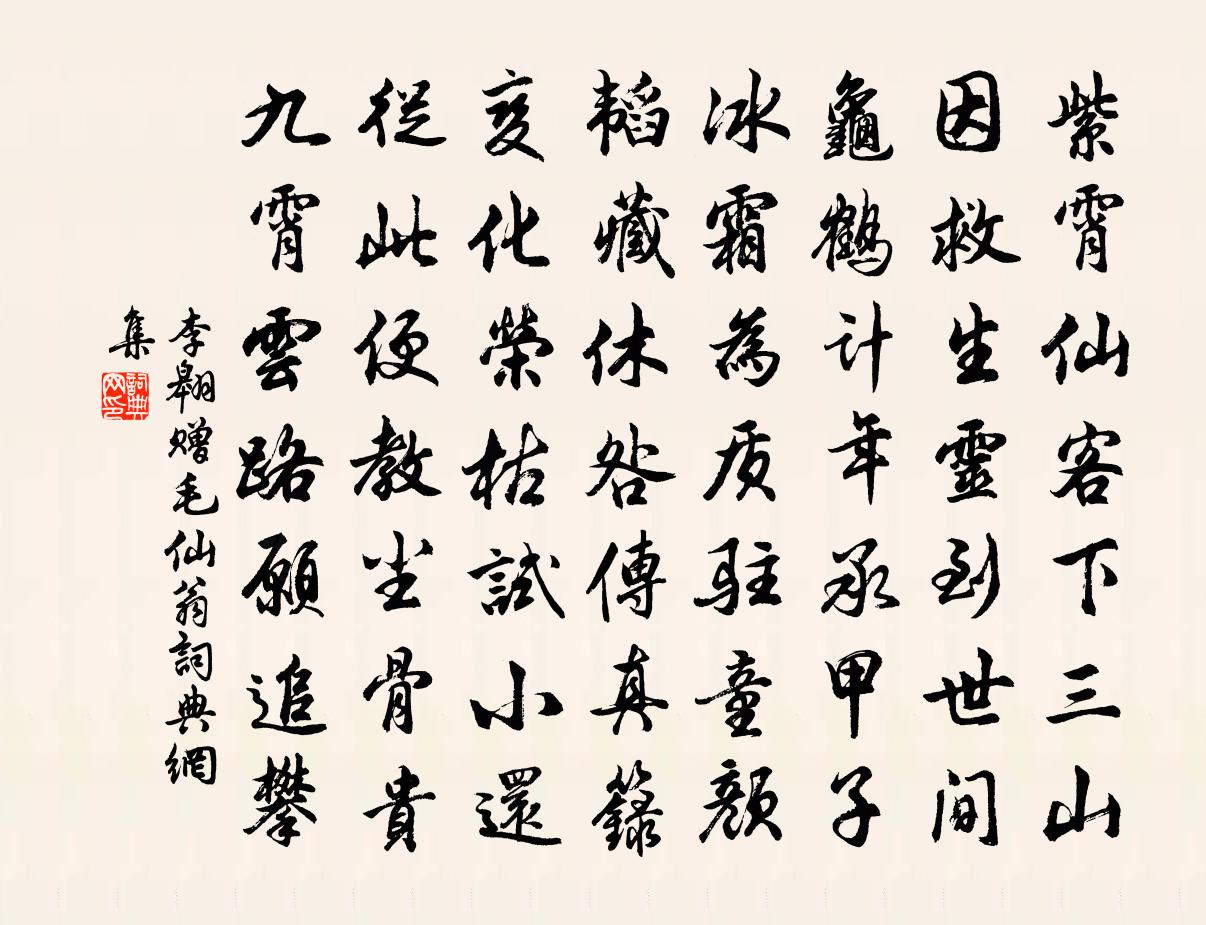 紫霄仙客下三山
因救生靈到世間
龜鶴計年承甲子
冰霜為质駐童顏
韬藏休咎傳真籙
变化榮枯試小還
從此便教尘骨貴
九霄雲路願追攀
李翱赠毛仙翁詞典網
集
詞典
网印